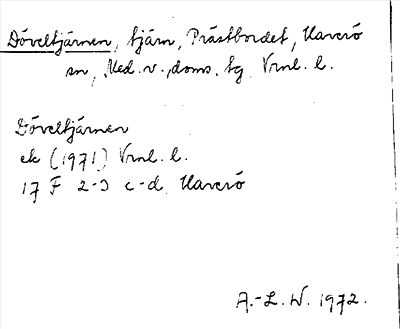 Döveltjärnen, tjärn, Prästbordet, Haverö
sn, Med. v., doms. tg Vrnl. l.
Döveltjärnen
ek (1971) Vrnl. l.
17 F 2-3 c-d Haverö
A.-L. W. 1972.